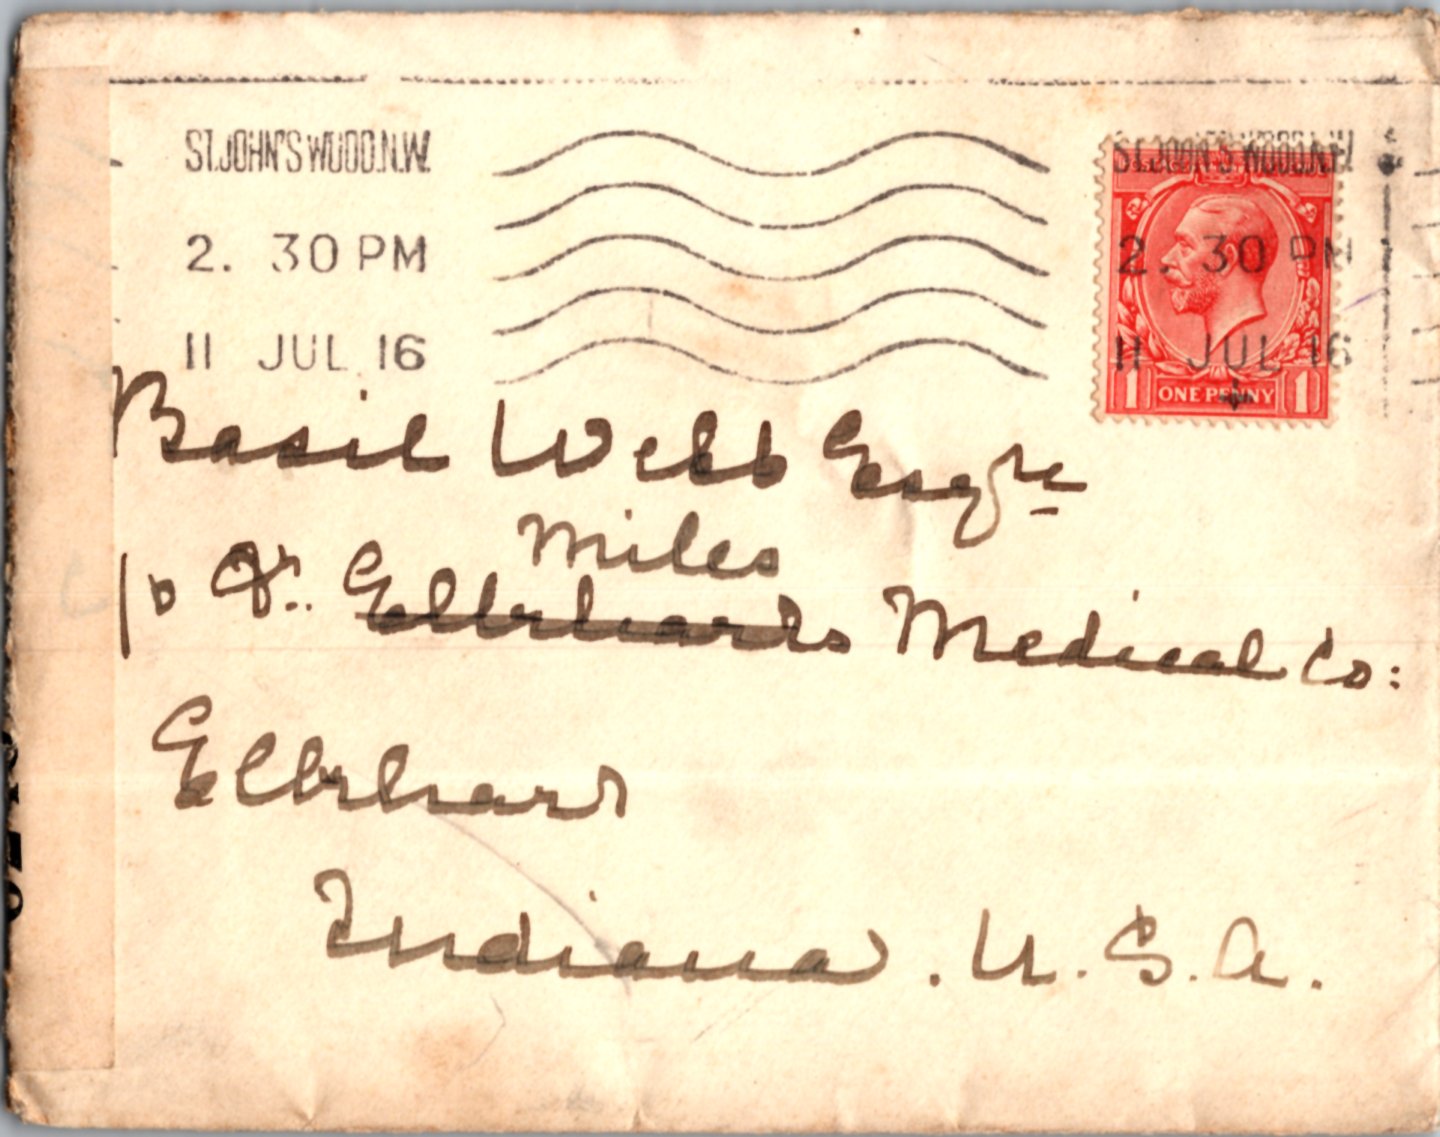 ST.JOHN'S WOOD.N.W. ST.JOHN'S WOOD.N.W.
2. 30 PM 2. 30 PM
11 JUL 16 11 JUL 16
1 ONE PENNY 1
Basil Webb Esqre
Miles
c/o Dr. Elkharts Medical Co:
Elkhart
Indiana. U.S.A.